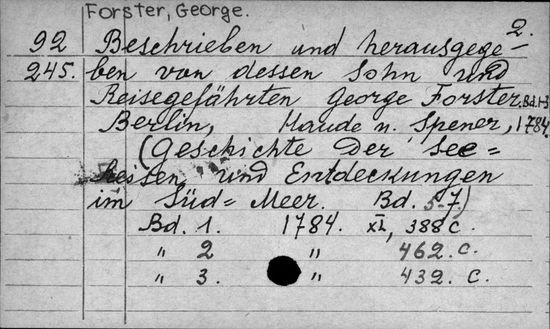 Forster, George.
2.
92 Beschrieben und herausgege=
245. ben von dessen Sohn und
Reisegefährten George Forster. Bd. 1-3
Berlin, Haude u. Spener, 1784.
(Geschichte der See=
Reisen und Entdeckungen
im Süd= Meer. Bd. 5-7.)
Bd. 1. 1784. XII, 388 c.
" 2 " 462. c.
" 3. " 432. c.